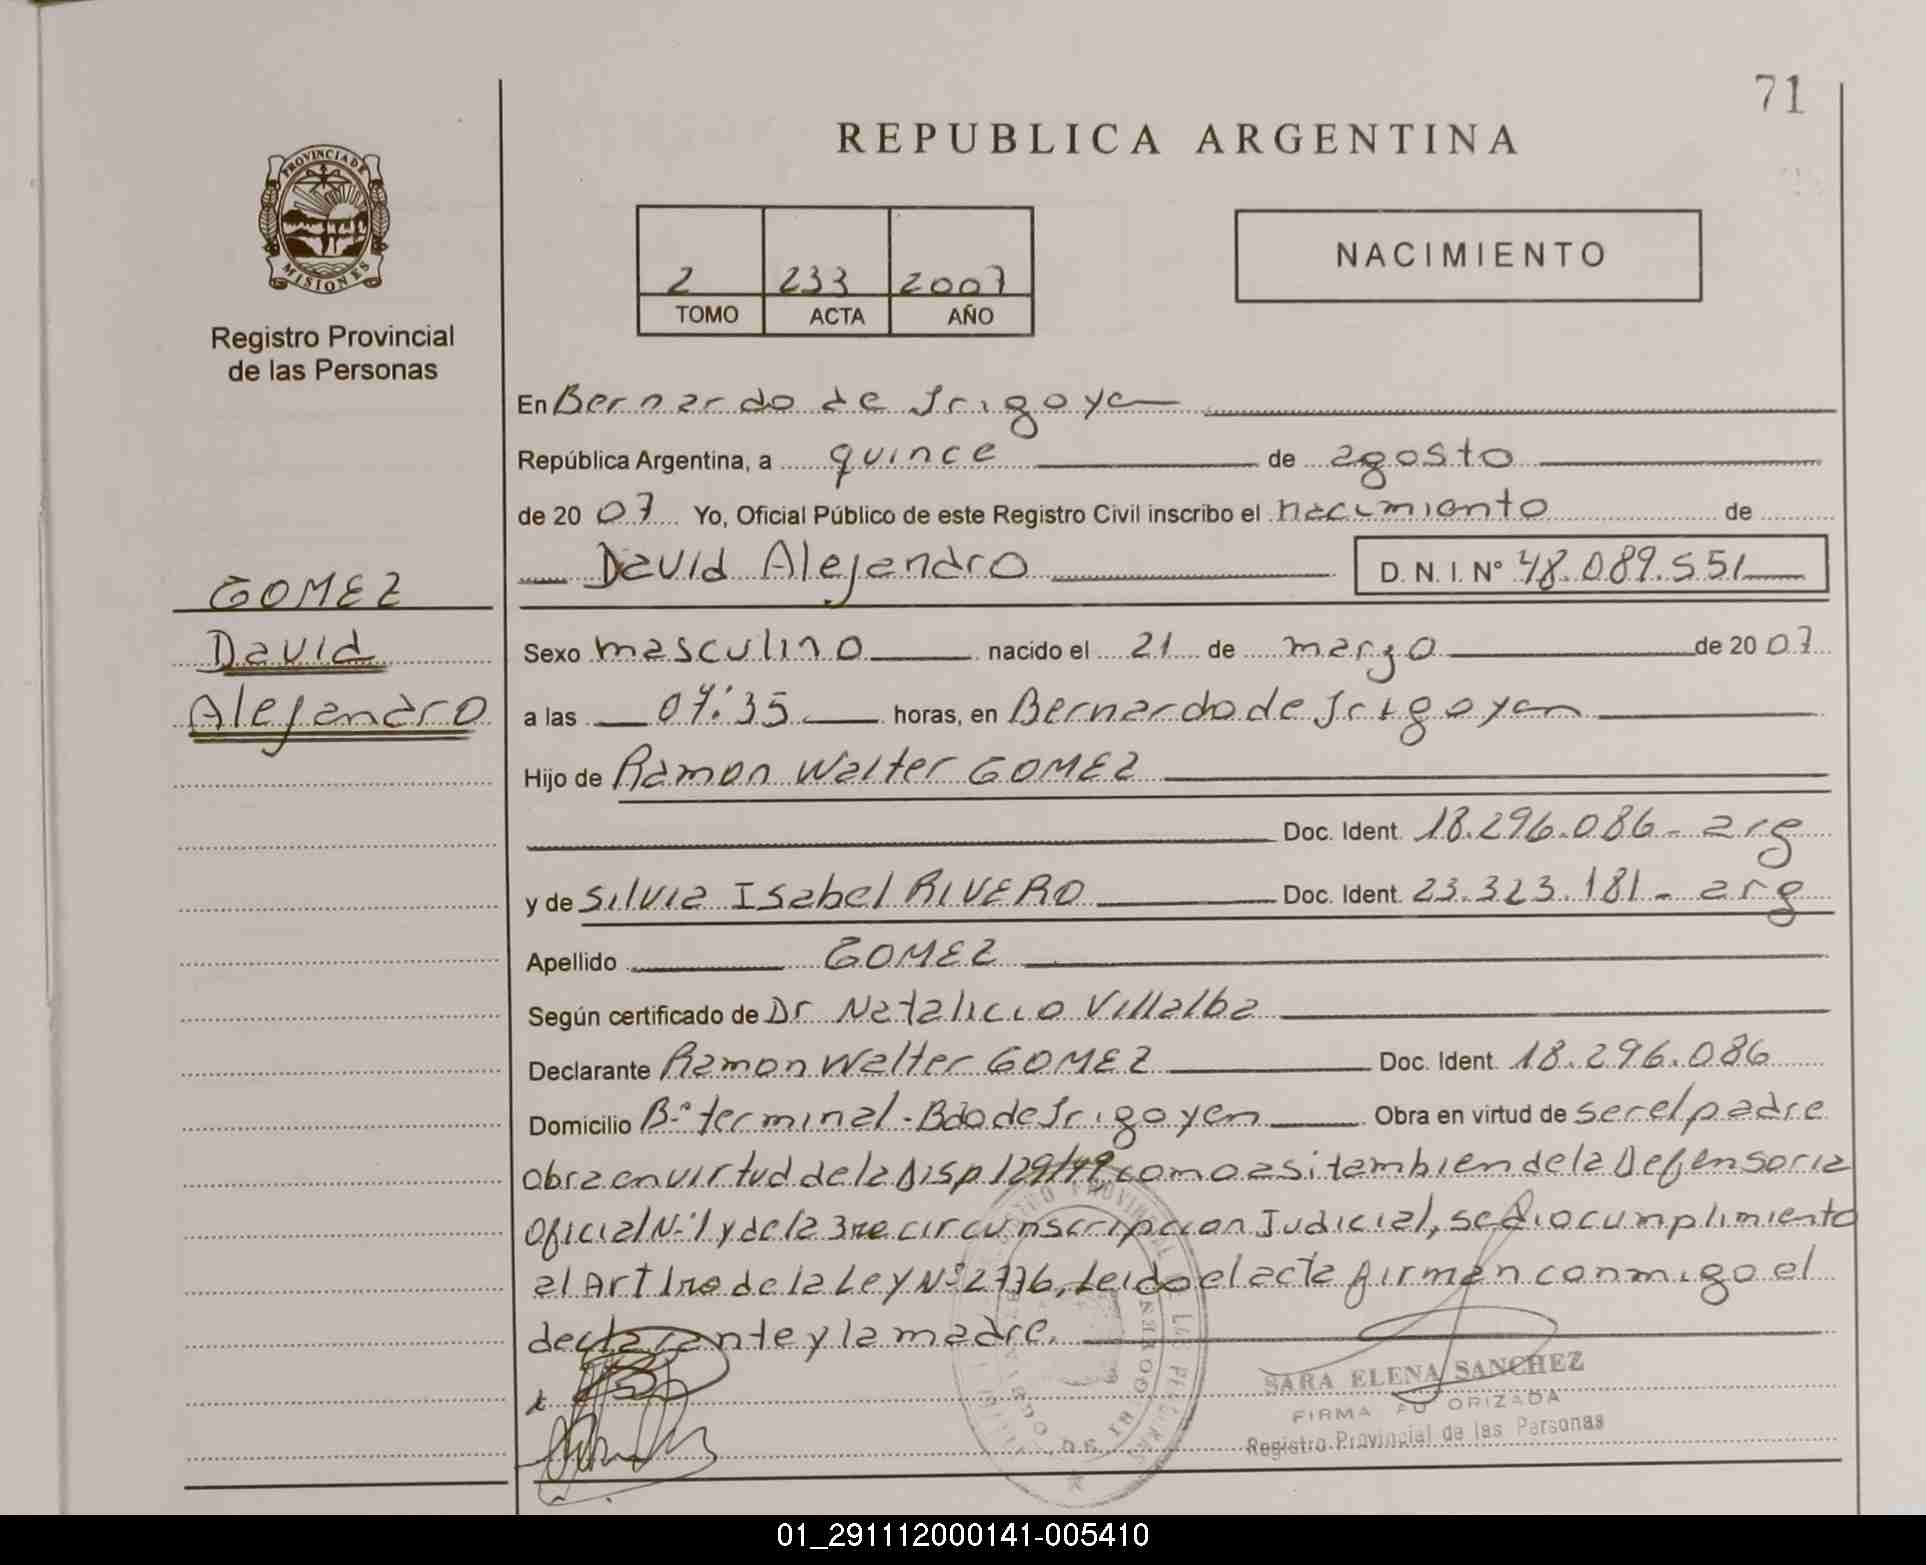 71
REPUBLICA ARGENTINA
PROVINCIA DE
MISIONES
Registro Provincial
de las Personas
2 233 2007
TOMO ACTA AÑO
NACIMIENTO
En Bernardo de Irigoyen
República Argentina, a quince de agosto
de 2007 Yo, Oficial Público de este Registro Civil inscribo el nacimiento de
David Alejandro D.N.I. N° 48.089.551
GOMEZ
David
Alejandro
Sexo masculino nacido el 21 de marzo de 2007
a las 07:35 horas, en Bernardo de Irigoyen
Hijo de Ramon Walter GOMEZ
Doc. Ident. 18.296.086 - arg
y de Silvia Isabel RIVERO Doc. Ident. 23.323.181 - arg
Apellido GOMEZ
Según certificado de Dr Natalicio Villalba
Declarante Ramon Walter GOMEZ Doc. Ident. 18.296.086
Domicilio B° terminal - Bdo de Irigoyen Obra en virtud de ser el padre
obra en virtud de la Disp 129/99 como asi tambien de la Defensoria
Oficial N° 1 y de la 3ra circunscripcion Judicial, se dio cumplimiento
al Art 1ro de la Ley N° 2776, Leido el acta firman conmigo el
declarante y la madre.
SARA ELENA SANCHEZ
FIRMA AUTORIZADA
Registro Provincial de las Personas
01_291112000141-005410